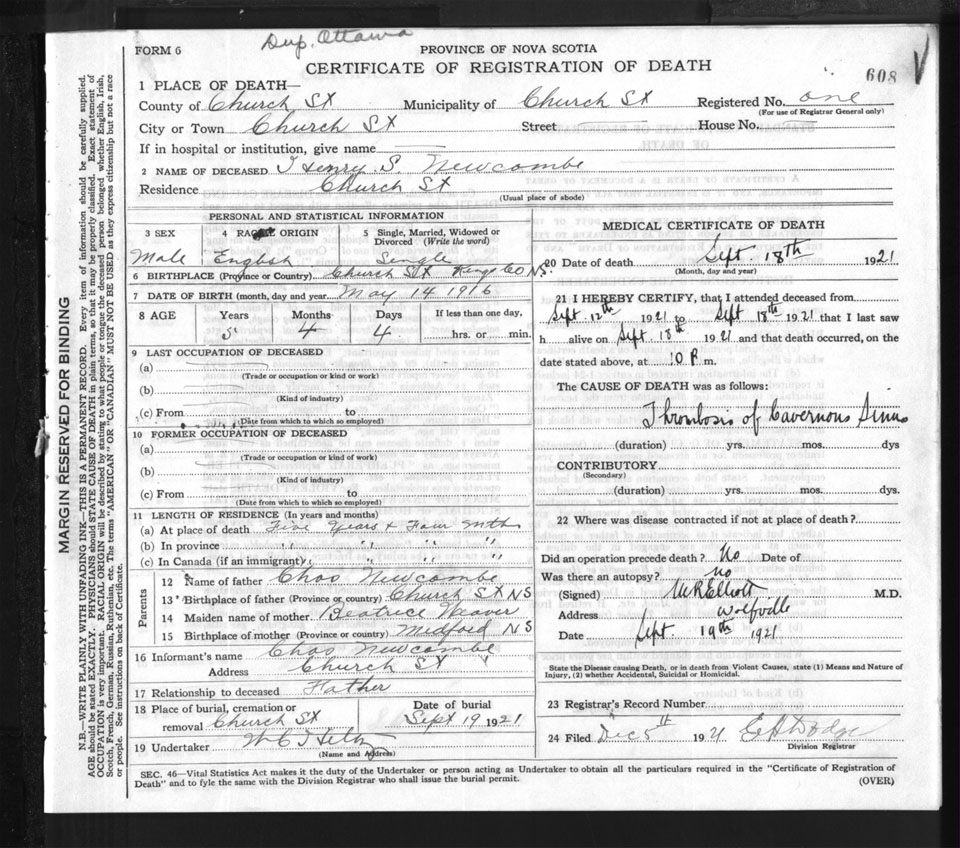 Dup. Ottawa
FORM 6
PROVINCE OF NOVA SCOTIA
CERTIFICATE OF REGISTRATION OF DEATH
608
1 PLACE OF DEATH—
County of Church St Municipality of Church St Registered No. one
(For use of Registrar General only)
City or Town Church St Street House No.
If in hospital or institution, give name
2 NAME OF DECEASED Henry S. Newcombe
Residence Church St
(Usual place of abode)
PERSONAL AND STATISTICAL INFORMATION
3 SEX 4 RACIAL ORIGIN 5 Single, Married, Widowed or Divorced (Write the word)
Male English Single
6 BIRTHPLACE (Province or Country) Church St Kings Co NS.
7 DATE OF BIRTH (month, day and year) May 14 1916
8 AGE Years Months Days If less than one day,
5 4 4 hrs. or min.
9 LAST OCCUPATION OF DECEASED
(a)
(Trade or occupation or kind of work)
(b)
(Kind of industry)
(c) From to
(Date from which to which so employed)
10 FORMER OCCUPATION OF DECEASED
(a)
(Trade or occupation or kind of work)
(b)
(Kind of industry)
(c) From to
(Date from which to which so employed)
11 LENGTH OF RESIDENCE (In years and months)
(a) At place of death Five Years & Four Mths
(b) In province " " " "
(c) In Canada (if an immigrant) " " " "
Parents
12 Name of father Chas Newcombe
13 Birthplace of father (Province or country) Church St NS
14 Maiden name of mother Beatrice Weaver
15 Birthplace of mother (Province or country) Medford NS
16 Informant's name Chas Newcombe
Address Church St
17 Relationship to deceased Father
18 Place of burial, cremation or removal Church St
Date of burial
Sept 19 1921
19 Undertaker
(Name and Address)
MEDICAL CERTIFICATE OF DEATH
20 Date of death Sept. 18th 1921
(Month, day and year)
21 I HEREBY CERTIFY, that I attended deceased from
Sept 12th 1921 to Sept 18th 1921 that I last saw
h alive on Sept 18th 1921 and that death occurred, on the
date stated above, at 10 P m.
The CAUSE OF DEATH was as follows:
Thrombosis of Cavernous Sinus
(duration) yrs. mos. dys
CONTRIBUTORY
(Secondary)
(duration) yrs. mos. dys.
22 Where was disease contracted if not at place of death?
Did an operation precede death? No Date of
Was there an autopsy? no
(Signed) M.R. Elliott M.D.
Address Wolfville
Date Sept. 19th 1921
State the Disease causing Death, or in death from Violent Causes, state (1) Means and Nature of
Injury, (2) whether Accidental, Suicidal or Homicidal.
23 Registrar's Record Number
24 Filed Dec 5th 1921 Dodge
Division Registrar
SEC. 46—Vital Statistics Act makes it the duty of the Undertaker or person acting as Undertaker to obtain all the particulars required in the "Certificate of Registration of
Death" and to fyle the same with the Division Registrar who shall issue the burial permit. (OVER)
MARGIN RESERVED FOR BINDING
N.B.—WRITE PLAINLY WITH UNFADING INK—THIS IS A PERMANENT RECORD. Every item of information should be carefully supplied.
AGE should be stated EXACTLY. PHYSICIANS should STATE CAUSE OF DEATH in plain terms, so that it may be properly classified. Exact statement of
OCCUPATION is very important. RACIAL ORIGIN will be described by stating to what people or tongue the deceased person belonged, whether English, Irish,
Scotch, French, German, Russian, Ruthenian, etc. The terms "AMERICAN" or "CANADIAN" MUST NOT BE USED as they express citizenship but not a race
or people. See instructions on back of Certificate.